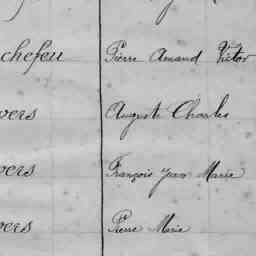 chefeu Pierre Amand Victor
vers Auguste Charles
vers François Jean Marie
vers Pierre Marie